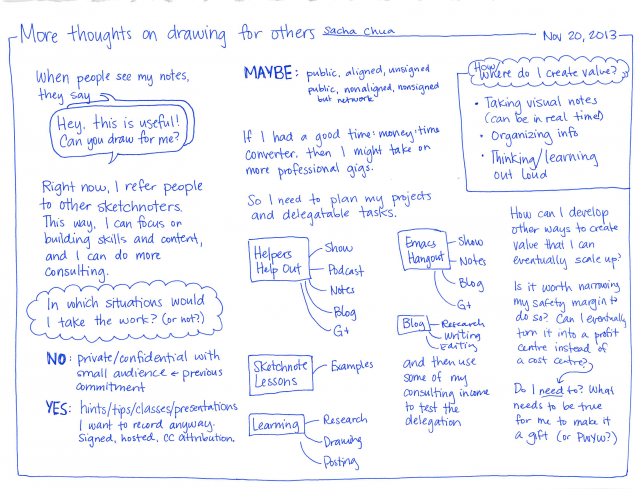 More thoughts on drawing for others sacha chua
Nov 20, 2013
When people see my notes,
they say
Hey, this is useful!
Can you draw for me?
Right now, I refer people
to other sketchnoters.
This way, I can focus on
building skills and content,
and I can do more
consulting.
In which situations would
I take the work? (or not?)
NO: private/confidential with
small audience ← previous
commitment
YES: hints/tips/classes/presentations
I want to record anyway.
Signed, hosted, CC attribution.
MAYBE: public, aligned, unsigned
public, nonaligned, nonsigned
but network
If I had a good time:money:time
converter, then I might take on
more professional gigs.
So I need to plan my projects
and delegatable tasks.
Helpers
Help Out
Show
Podcast
Notes
Blog
G+
Sketchnote
Lessons
Examples
Learning
Research
Drawing
Posting
Emacs
Hangout
Show
Notes
Blog
G+
Blog
Research
Writing
Editing
and then use
some of my
consulting income
to test the
delegation
How/
Where do I create value?
• Taking visual notes
(can be in real time)
• Organizing info
• Thinking/learning
out loud
How can I develop
other ways to create
value that I can
eventually scale up?
Is it worth narrowing
my safety margin to
do so? Can I eventually
turn it into a profit
centre instead of
a cost centre?
Do I need to? What
needs to be true
for me to make it
a gift (or PWYW?)